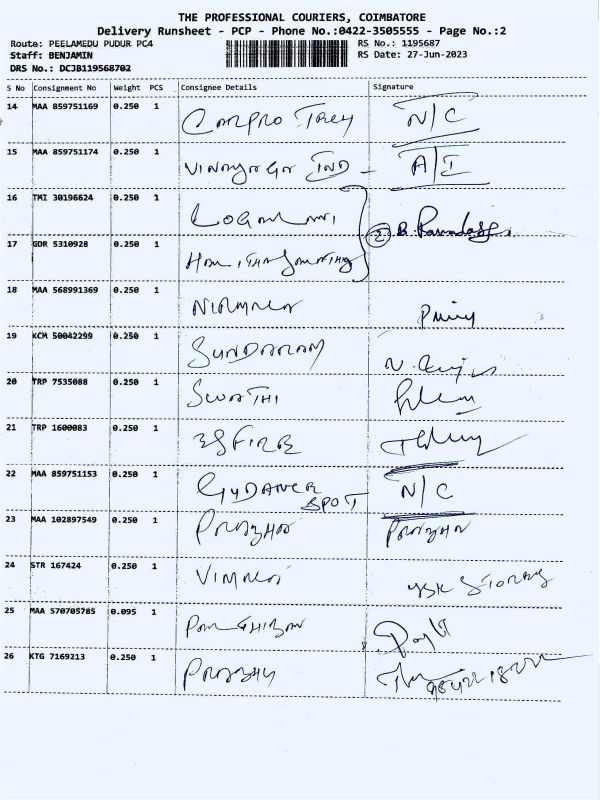 THE PROFESSIONAL COURIERS, COIMBATORE
Delivery Runsheet - PCP - Phone No.:0422-3505555 - Page No.:2
Route: PEELAMEDU PUDUR PC4 RS No.: 1195687
Staff: BENJAMIN RS Date: 27-Jun-2023
DRS No.: DCJB119568702
S No Consignment No Weight PCS Consignee Details Signature
14 MAA 859751169 0.250 1 N/C
15 MAA 859751174 0.250 1 VINAYAGA IND A/I
16 TMI 30196624 0.250 1
17 GDR 5310928 0.250 1
2
18 MAA 568991369 0.250 1 NIRMALA
19 KCM 50042299 0.250 1 SUNDARAM
20 TRP 7535088 0.250 1 SWATHI
21 TRP 1600083 0.250 1 FIRE
22 MAA 859751153 0.250 1 GUDANCE SPOT N/C
23 MAA 102897549 0.250 1 PRABHA PRABHA
24 STR 167424 0.250 1 VIMALA STORES
25 MAA 570705785 0.095 1
26 KTG 7169213 0.250 1 PRABHU